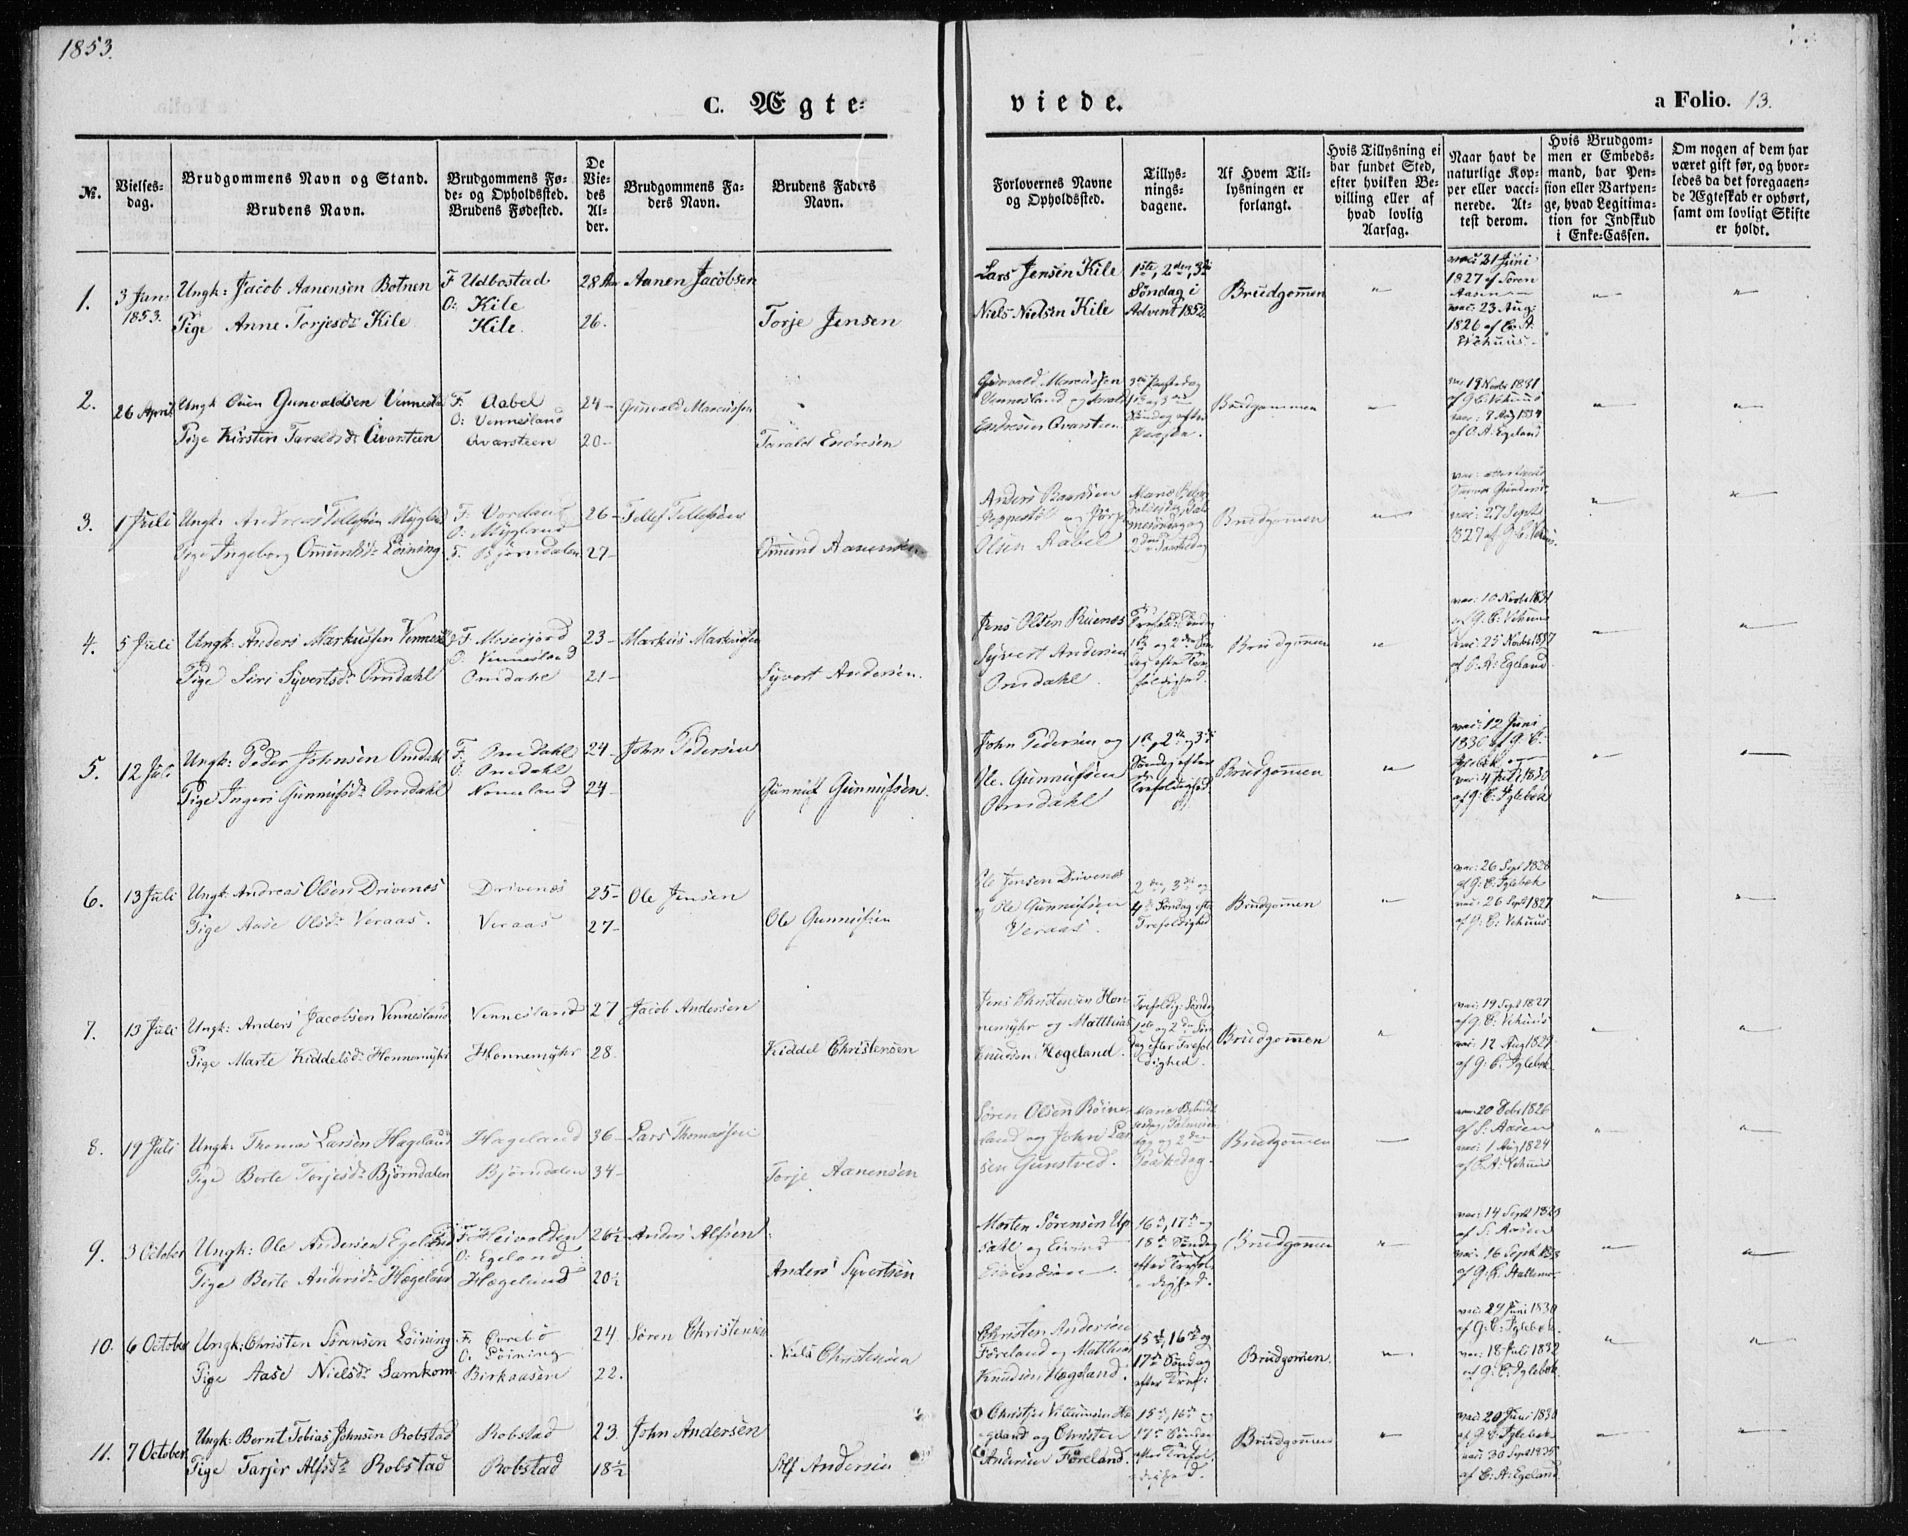 1853.
C. Ægte-
viede.
a Folio. 13.
No.
Vielses-
dag.
Brudgommens Navn og Stand.
Brudens Navn.
Brudgommens Fø-
de- og Opholdssted.
Brudens Fødested.
De
Vie-
des
Al-
der.
Brudgommens Fa-
ders Navn.
Brudens Faders
Navn.
Forlovernes Navne
og Opholdssted.
Tillys-
nings-
dagene.
Af Hvem Til-
lysningen er
forlangt.
Hvis Tillysning ei
har fundet Sted,
efter hvilken Be-
villing eller af
hvad lovlig
Aarsag.
Naar havt de
naturlige Kop-
per eller vacci-
nerede. At-
test derom.
Hvis Brudgom-
men er Embeds-
mand, har Pen-
sion eller Vartpen-
ge, hvad Legitima-
tion for Indskud
i Enke-Cassen.
Om nogen af dem har
været gift før, og hvor-
ledes da det foregaaen-
de Ægteskab er ophørt,
samt om lovligt Skifte
er holdt.
1.
3 Jan:
1853.
Ungk: Jacob Aanensen Botnen
Pige Anne Torjesdr Kile
F Udbostad
O: Kile
Kile.
28 Aar
26.
Aanen Jacobsen
Torje Jensen
Lars Jensen Kile
Niels Nielsen Kile
1ste, 2den, 3die
Søndag i
Advent 1852
Brudgommen
vac: 21 Juni
1827 af Søren
Aasen
vac: 23 Aug:
1826 af C. A.
Vehuus
2.
26 April
Ungk Ouen Gunvaldsen Vennesla
Pige Kirsten Taraldsdr Qvarsteen
F. Aabel
O: Vennesland
Qvarsteen
24-
20-
Gunvald Marcussen
Tarald Endresen
Gunvald Marcussen
Vennesland og Tarald
Endresen Qvarsteen
Søndag efter
Paaske.
Brudgommen
vac. 19 Novbr 1831
af G. C. Vehuus
vac: 8 Aug 1834
af O. A. Egeland
3.
1 Juli
Ungk: Andreas Tellefsen Mygland
Pige Ingeborg Omundsdr Löining
O: Mygland
F. Björndalen
26-
27-
Tellef Tellefsen
Omund Aanensen
Olsen Aabel
2den Paaskedag
Brudgommen
vac: 27 Sept
1827 af G. C. Vehuus
4.
5 Juli
Ungk: Anders Markussen Vennesld
Pige Siri Syvertsdr Omdahl
F. Moseigjord
O. Vennesland
Omdahl
23-
21-
Markus Markussen
Syvert Andersen.
Jens Olsen Ruenes
Syvert Andersen
Omdahl.
1ste og 2den Søn-
dag efter Tre-
foldighed.
Brudgommen
vac: 10 Novbr 1831
af G. C. Vehuus
vac: 25 Novbr 1837
af O. A. Egeland
5.
12 Juli
Ungk: Peder Johnsen Omdahl
Pige Ingeri Gunnufsdr Omdahl
F. Omdahl
O: Omdahl
Nomeland
24-
24-
John Pedersen
Gunnuf Gunnufsen.
John Pedersen og
Ole Gunnufsen
Omdahl
1ste, 2den og 3die
Søndag efter
Trefoldighed
Brudgommen
vac: 12 Juni
1830 af G. C.
Iglebæk
vac: 4 Juli 1830
af G. C. Iglebæk
6.
13 Juli
Ungk: Andreas Olsen Drivenes
Pige Aase Olsdr Veraas.
Drivenes
Veraas
25-
27-
Ole Jensen
Ole Gunnufsen
Ole Jensen Drivenes
og Ole Gunnufsen
Veraas.
2den, 3die og
4de Søndag eftr
Trefoldighed
Brudgommen
vac: 26 Sept 1828
af G. C. Iglebæk
vac: 26 Sept 1827
af G: C: Vehuus
7.
13 Juli
Ungk: Anders Jacobsen Vennesland
Pige Marte Kiddelsdr Honnemyhr
Vennesland
Honnemyhr
27
28.
Jacob Andersen
Kiddel Christensen
Jens Christensen Hon-
nemyhr og Matthias
Knudsen Hægeland.
Trefoldig: Søndag
1ste og 2den Søn-
dag efter Trefol-
dighed.
Brudgommen
vac: 19 Sept 1827
af G. C: Vehuus
vac: 12 Aug 1827
af G: C. Iglebæk.
8.
19 Juli
Ungk: Thomas Larsen Hægeland
Pige Berte Torjesdr Björndalen
Hægeland
Björndalen
36-
34-
Lars Thomassen
Torje Aanensen
Søren Olsen Röine-
land og John Lar-
sen Gunstved.
Marie Bebud-
elsdag, Palmesøn-
dag og 2den
Paaskedag.
Brudgommen
vac: 20 Debr 1826
af S. Aasen
vac: 1 Aug 1824
af C. A: Vehuus
9.
3 October
Ungk: Ole Andersen Egeland
Pige Berte Andersdr Hægeland
F. Heivolden
O: Egeland
Hægeland
26½
20½
Anders Alfsen
Anders Syvertsen
Morten Sørensen Up-
sahl og Eivind
Eivindsen.
16de, 17de og
18de Søndag
efter Trefol-
dighed.
Brudgommen
vac: 14 Sept 1828
af S. Aasen
vac: 16 Sept 1833
af G. K. Hallemo
10.
6 October
Ungk: Christen Sørensen Löining
Pige Aase Nielsdr Samkom
F. Øvrebö
O: Löining
Birkaasen
24
22.
Søren Christensen
Niels Christensen
Christen Andersen
Föreland og Matthias
Knudsen Hægeland.
15de, 16de og
17de Søndag
efter Tref:
Brudgommen.
vac: 29 Juni 1830
af G: C. Iglebæk.
vac: 18 Juli 1832
af G: C: Iglebæk.
11.
7 October
Ungk: Bernt Tobias Johnsen Robstad
Pige Tarjer Alfsdr Robstad
Robstad
Robstad
23.
18½
John Andersen
Alf Andersen
Christen Villumsen Hæ-
geland og Christen
Andersen Föreland.
15de, 16de og
17de Søndag
efter Trefol-
dighed.
Brudgommen
vac: 20 Juni 1830
af G: C Iglebæk
vac: 30 Sept 1835
af C: A: Egeland